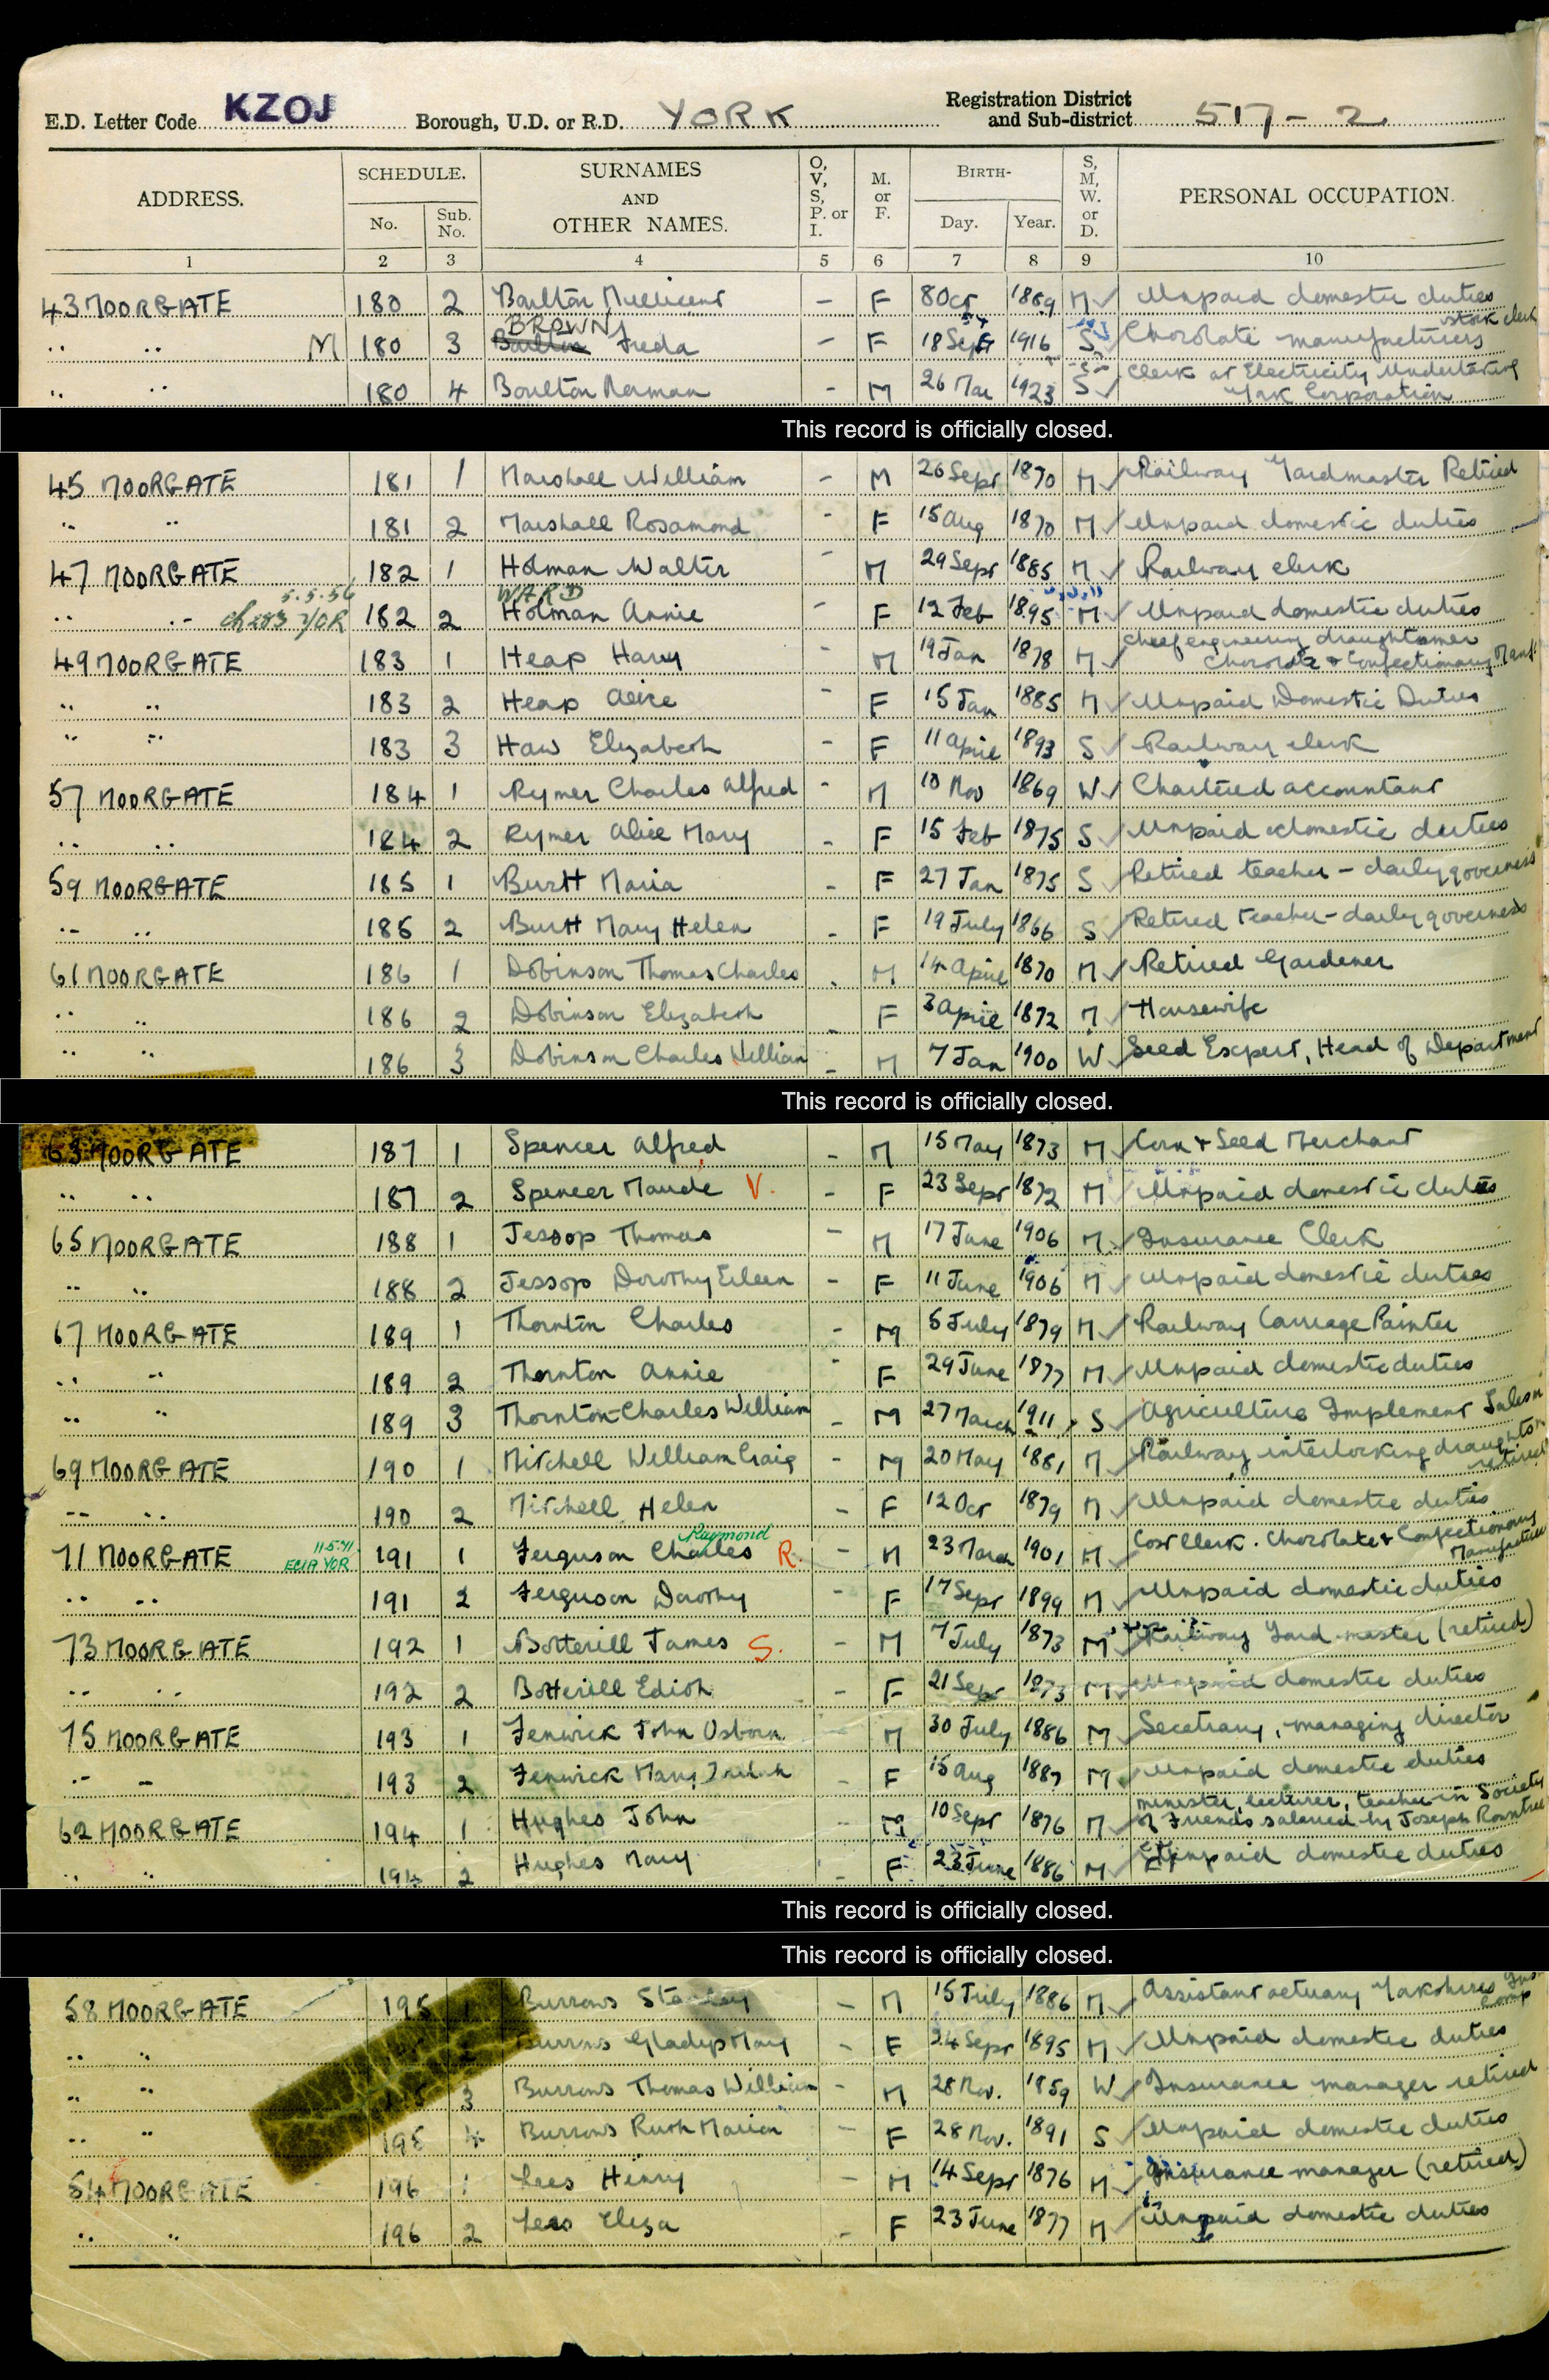 E.D. Letter Code KZOJ Borough, U.D. or R.D. YORK Registration District and Sub-district 517-2
ADDRESS. SCHEDULE. No. Sub. No. SURNAMES AND OTHER NAMES. O, V, S, P. or I. M. or F. BIRTH- Day. Year. S, M, W. or D. PERSONAL OCCUPATION.
1 2 3 4 5 6 7 8 9 10
43 MOORGATE 180 2 Boulton Millicent - F 8 Oct 1889 M Unpaid domestic duties
.. .. M 180 3 BROWN Freda - F 18 Sept 1916 S Chocolate manufacturers stock clerk
.. .. 180 4 Boulton Norman - M 26 Mar 1923 S Clerk at Electricity Undertaking York Corporation
This record is officially closed.
45 MOORGATE 181 1 Marshall William - M 26 Sept 1870 M Railway Yardmaster Retired
.. .. 181 2 Marshall Rosamond - F 15 Aug 1870 M Unpaid domestic duties
47 MOORGATE 182 1 Holman Walter - M 29 Sept 1885 M Railway clerk
5.5.56 WARD
.. .. YOR 182 2 Holman Annie - F 12 Feb 1895 M Unpaid domestic duties
49 MOORGATE 183 1 Heap Harry - M 19 Jan 1878 M Chief engineering draughtsman Chocolate & Confectionary Manf.
.. .. 183 2 Heap Alice - F 15 Jan 1885 M Unpaid Domestic Duties
.. .. 183 3 Haw Elizabeth - F 11 April 1893 S Railway clerk
57 MOORGATE 184 1 Rymer Charles Alfred - M 10 Nov 1869 W Chartered accountant
.. .. 184 2 Rymer Alice Mary - F 15 Feb 1875 S Unpaid domestic duties
59 MOORGATE 185 1 Burtt Maria - F 27 Jan 1875 S Retired teacher - daily governess
.. .. 185 2 Burtt Mary Helen - F 19 July 1866 S Retired teacher - daily governess
61 MOORGATE 186 1 Dobinson Thomas Charles - M 14 April 1870 M Retired Gardener
.. .. 186 2 Dobinson Elizabeth - F 3 April 1872 M Housewife
.. .. 186 3 Dobinson Charles William - M 7 Jan 1900 W Seed Expert, Head of Department
This record is officially closed.
63 MOORGATE 187 1 Spencer Alfred - M 15 May 1873 M Corn & Seed Merchant
.. .. 187 2 Spencer Maude V. - F 23 Sept 1872 M Unpaid domestic duties
65 MOORGATE 188 1 Jessop Thomas - M 17 June 1906 M Insurance Clerk
.. .. 188 2 Jessop Dorothy Eileen - F 11 June 1906 M Unpaid domestic duties
67 MOORGATE 189 1 Thornton Charles - M 5 July 1879 M Railway Carriage Painter
.. .. 189 2 Thornton Annie - F 29 June 1877 M Unpaid domestic duties
.. .. 189 3 Thornton Charles William - M 27 March 1911 S Agriculture Implement Salesm
69 MOORGATE 190 1 Mitchell William Craig - M 20 May 1881 M Railway interlocking draughtsm retired
.. .. 190 2 Mitchell Helen - F 12 Oct 1879 M Unpaid domestic duties
11.5.41 Raymond
71 MOORGATE ECIA YOR 191 1 Ferguson Charles R. - M 23 March 1901 M Cost Clerk. Chocolate & Confectionary Manufacture
.. .. 191 2 Ferguson Dorothy - F 17 Sept 1899 M Unpaid domestic duties
73 MOORGATE 192 1 Botterill James S. - M 7 July 1873 M Railway Yard-master (retired)
.. .. 192 2 Botterill Edith - F 21 Sept 1873 M Unpaid domestic duties
75 MOORGATE 193 1 Fenwick John Osborn - M 30 July 1886 M Secetrary, managing director
.. .. 193 2 Fenwick Mary - F 15 Aug 1887 M Unpaid domestic duties
62 MOORGATE 194 1 Hughes John - M 10 Sept 1876 M minister, lecturer, teacher in Society of Friends salaried by Joseph Rowntree
.. .. 194 2 Hughes Mary - F 23 June 1886 M Unpaid domestic duties
This record is officially closed.
This record is officially closed.
58 MOORGATE 195 1 Burrows Stanley - M 15 July 1886 M Assistant actuary Yorkshires Ins Comp
.. .. Burrows Gladys Mary - F 24 Sept 1895 M Unpaid domestic duties
.. .. 3 Burrows Thomas William - M 28 Nov. 1859 W Insurance manager retired
.. .. 195 4 Burrows Ruth Marion - F 28 Nov. 1891 S Unpaid domestic duties
54 MOORGATE 196 1 Lees Henry - M 14 Sept 1876 M Insurance manager (retired)
.. .. 196 2 Lees Eliza - F 23 June 1877 M Unpaid domestic duties